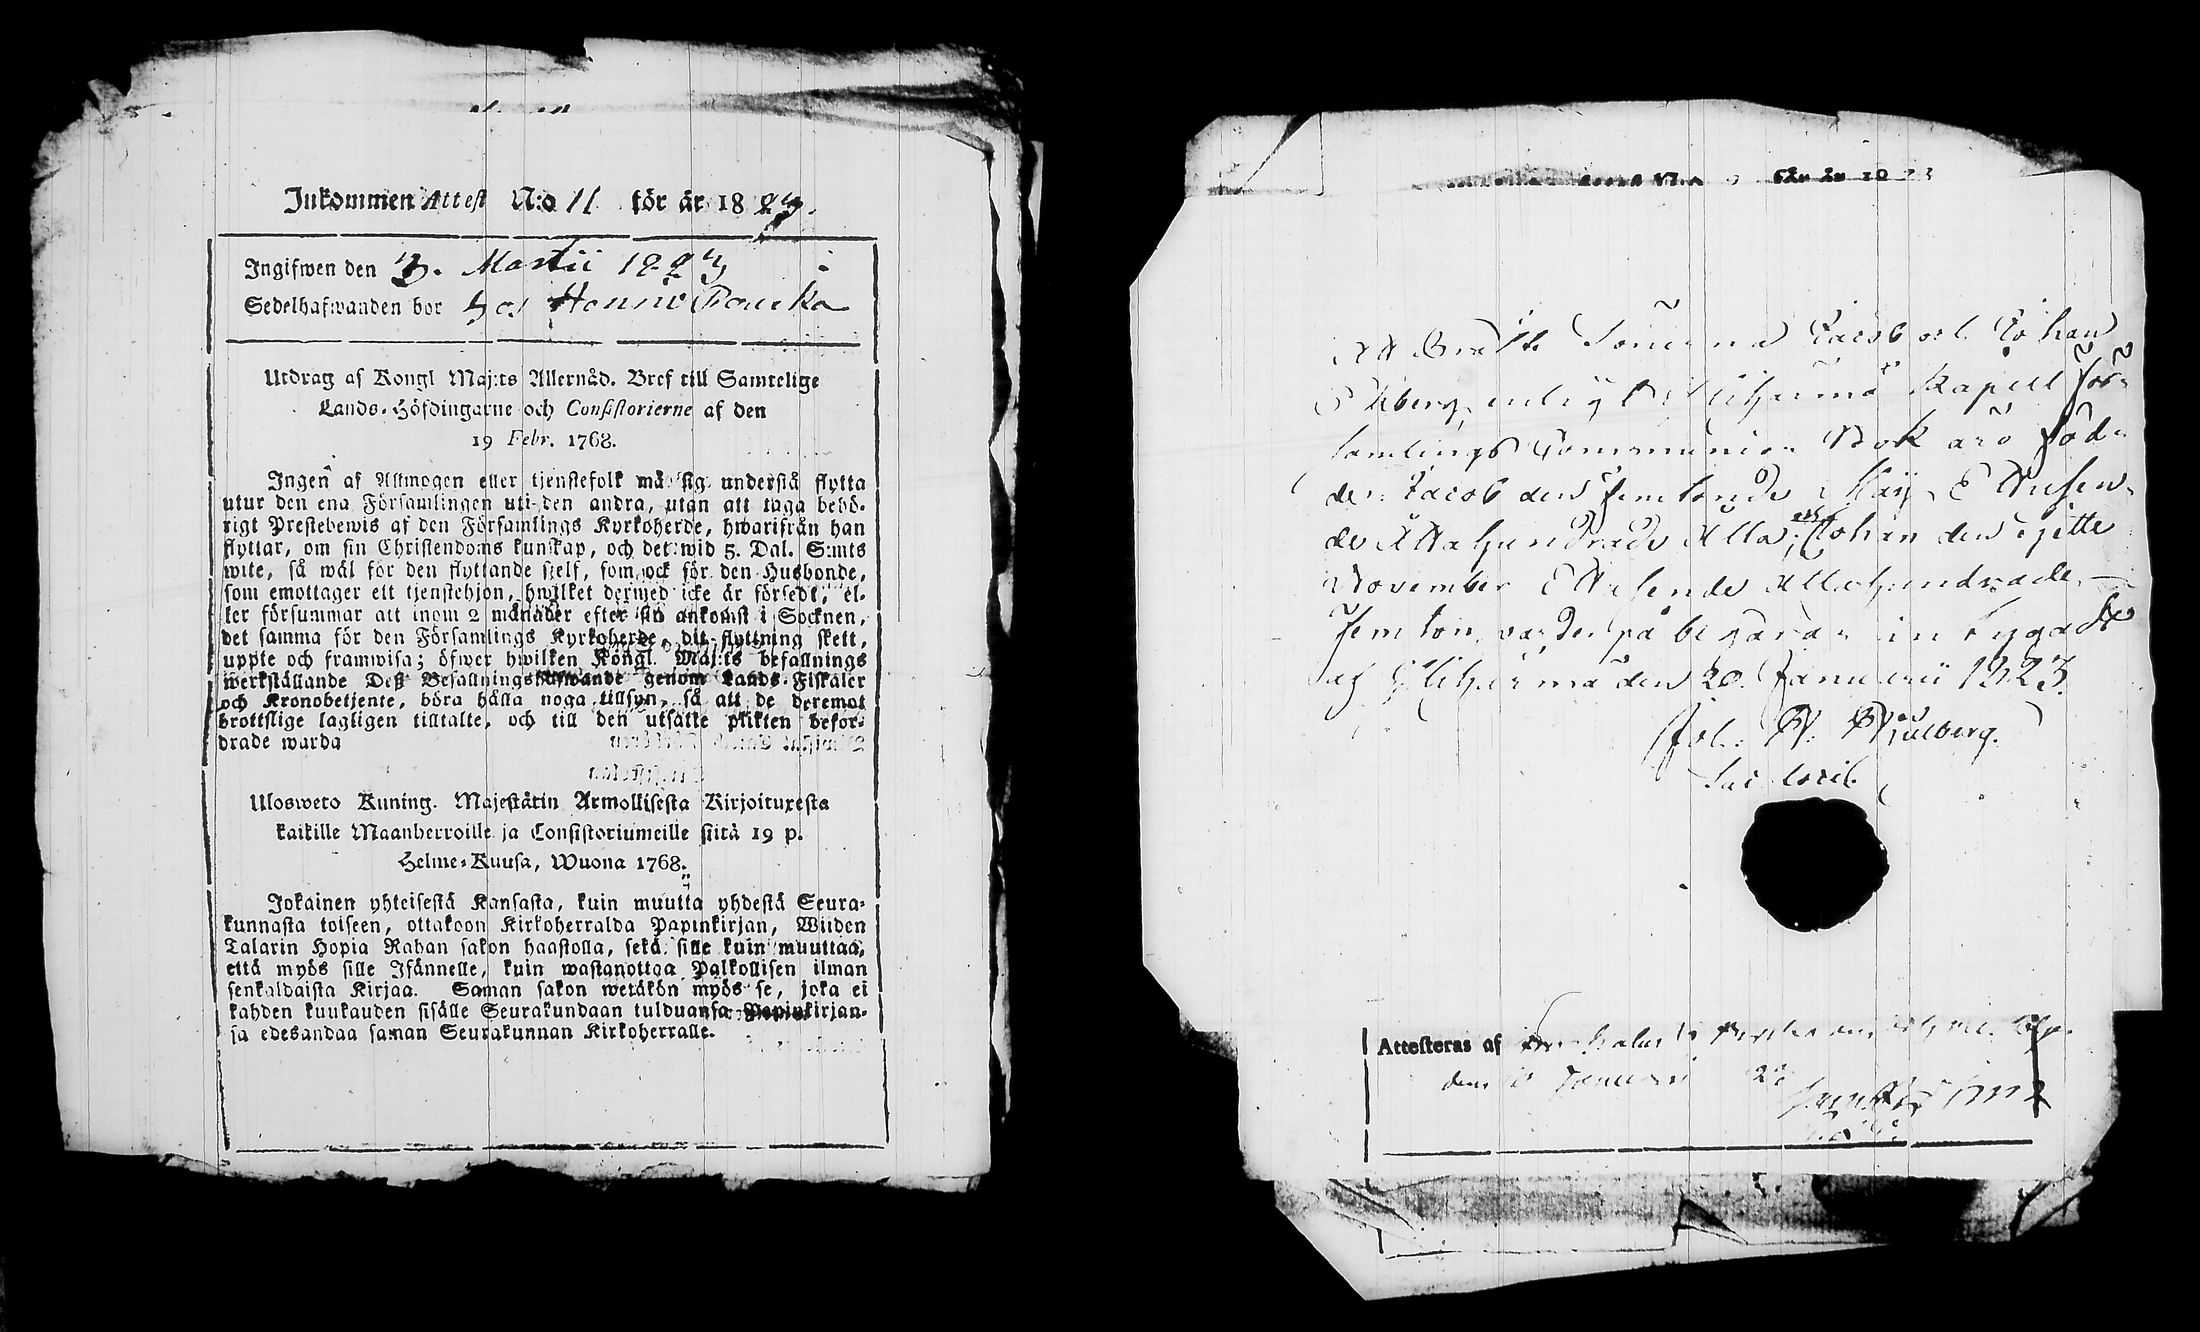 Inkommen Attest N:o 11 för år 1823.
Ingifwen den 3. Martii 1823
Sedelhafwanden bor hos
Utdrag af Kongl Maj:ts Allernåd. Bref till Samtelige
Lands-Höfdingarne och Consistorierne af den
19 Febr. 1768.
Ingen af Allmogen eller tjenstefolk må sig understå flytta
utur den ena Församlingen uti den andra, utan att taga behö-
rigt Prestebewis af den Församlings Kyrkoherde, hwarifrån han
flyttar, om sin Christendoms kunskap, och det wid 5. Dal. S:mts
wite, så wäl för den flyttande sjelf, som ock för den Husbonde,
som emottager ett tjenstehjon, hwilket dermed icke är försedt, el-
ler försummar att inom 2 månader efter sin ankomst i Socknen,
det samma för den Församlings Kyrkoherde, dit flyttning skett,
uppte och framwisa; öfwer hwilken Kongl. Maj:ts befallnings
werkställande Deß Befallningshafwande genom Lands-Fiskaler
och Kronobetjente, böra hålla noga tillsyn, så att de deremot
brottslige lagligen tilltalte, och till den utsatte plikten befor-
drade warda
Ulosweto Kuning. Majestätin Armollisesta Kirjoituxesta
kaikille Maanherroille ja Consistoriumeille siitä 19 p.
Helme-Kuusa, Wuona 1768.
Jokainen yhteisestä Kansasta, kuin muutta yhdestä Seura-
kunnasta toiseen, ottakoon Kirkoherralda Papinkirjan, Wiiden
Talarin Hopia Rahan sakon haastolla, sekä sille kuin muuttaa,
että myös sille Isännelle, kuin wastanottaa Palkollisen ilman
senkaldaista Kirjaa. Saman sakon wetäkön myös se, joka ei
kahden kuukauden sisälle Seurakundaan tulduansa Papinkirjan-
sa edesandaa saman Seurakunnan Kirkoherralle.
för år 1823
Att Sönerna Jacob och Johan
enligt Kapell För-
samlings Communion Bok äro föd-
de: Jacob den femtonde Maij Ettusen-
de Åttahundrade Åtta, och Johan den sjette
November Ettusende Åttahundrade
Femton, varder på begäran intygadt
af Ylihärmä den 20. Januarii 1823.
Joh. W.
Sacellan.
Attesteras af
den Januari 23